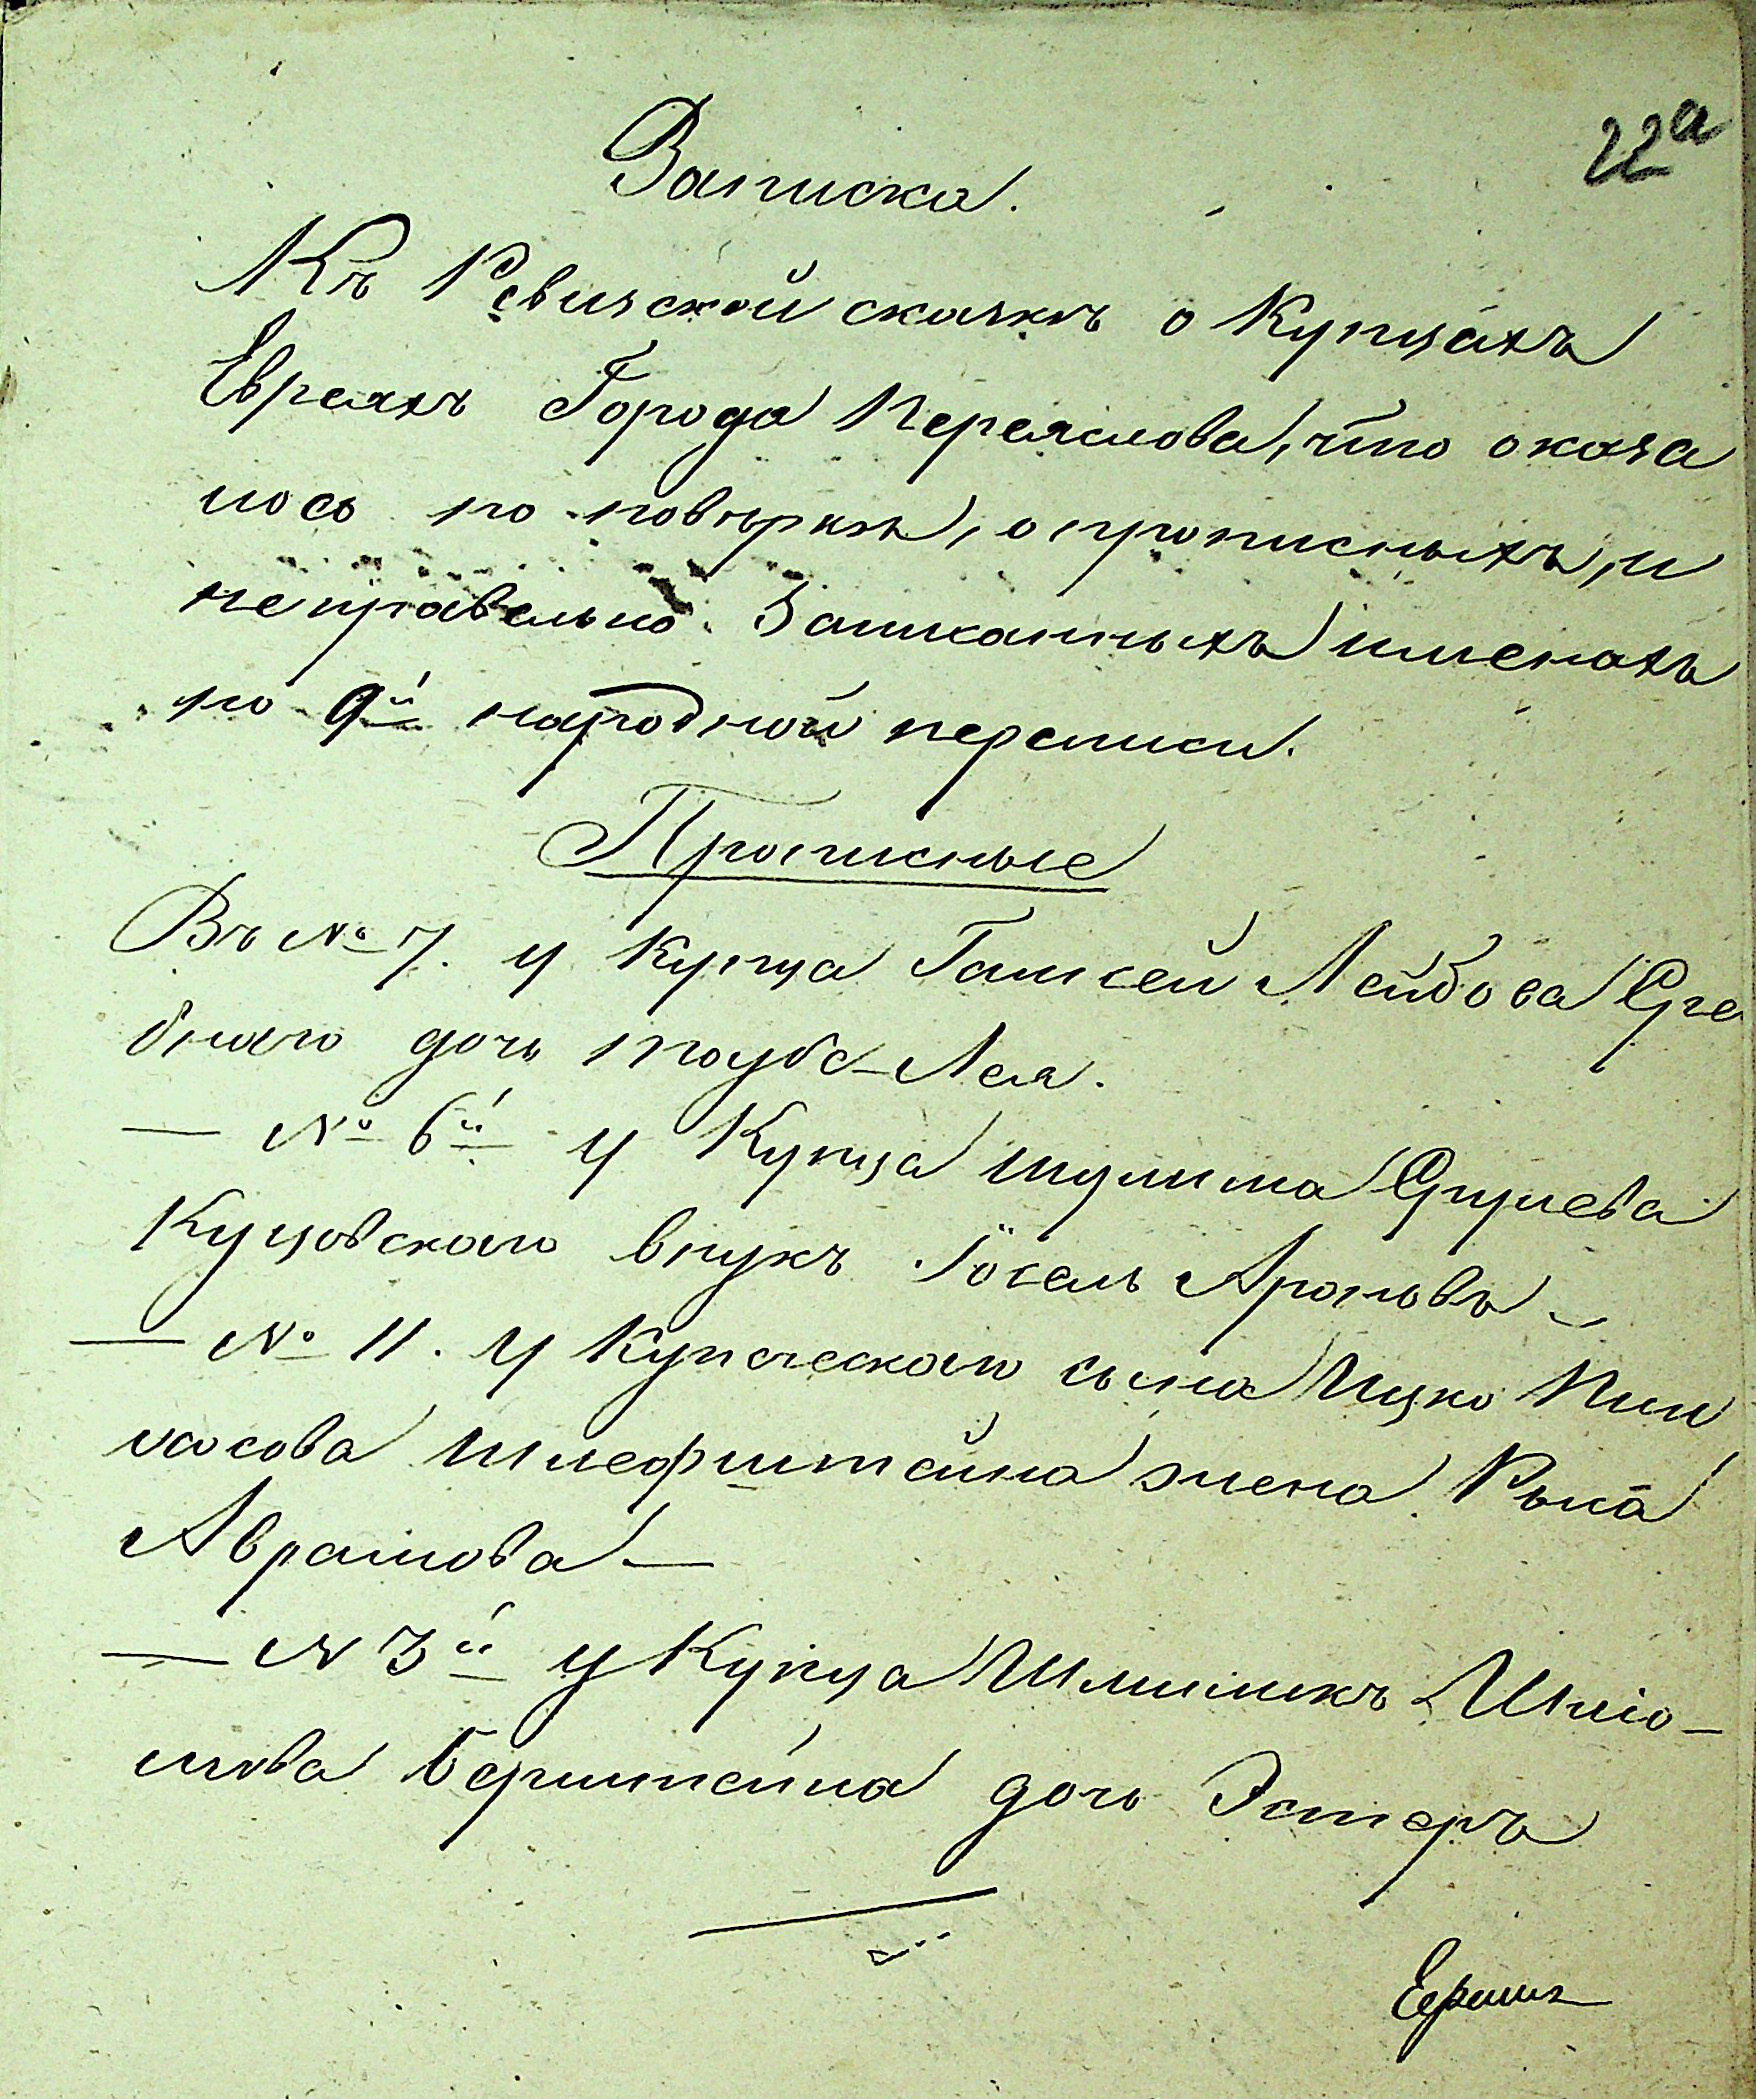 22а
Записка.
Къ Ревизской сказкѣ о Купцахъ
Евреяхъ Города Переяслова, что оказа
лось по повѣркѣ, о прописныхъ, и
неправельно Записанныхъ именахъ
по 9й народной переписи.
Прописные
Въ № 7. у Купца Гамшей Лейбова Сре
бнаго дочь Таубе-Лея.
— № 6й у Купца Шулима Сруլева
Куцовскаго внукъ Іосель Ароновъ
— № 11. у Купеческаго сына Ицко Пин
хасова Шлефштейна жена Рыса
Аврамова —
— № 3й у Купца Шлиомикъ Шліо-
мова Берштейна дочь Эстеръ